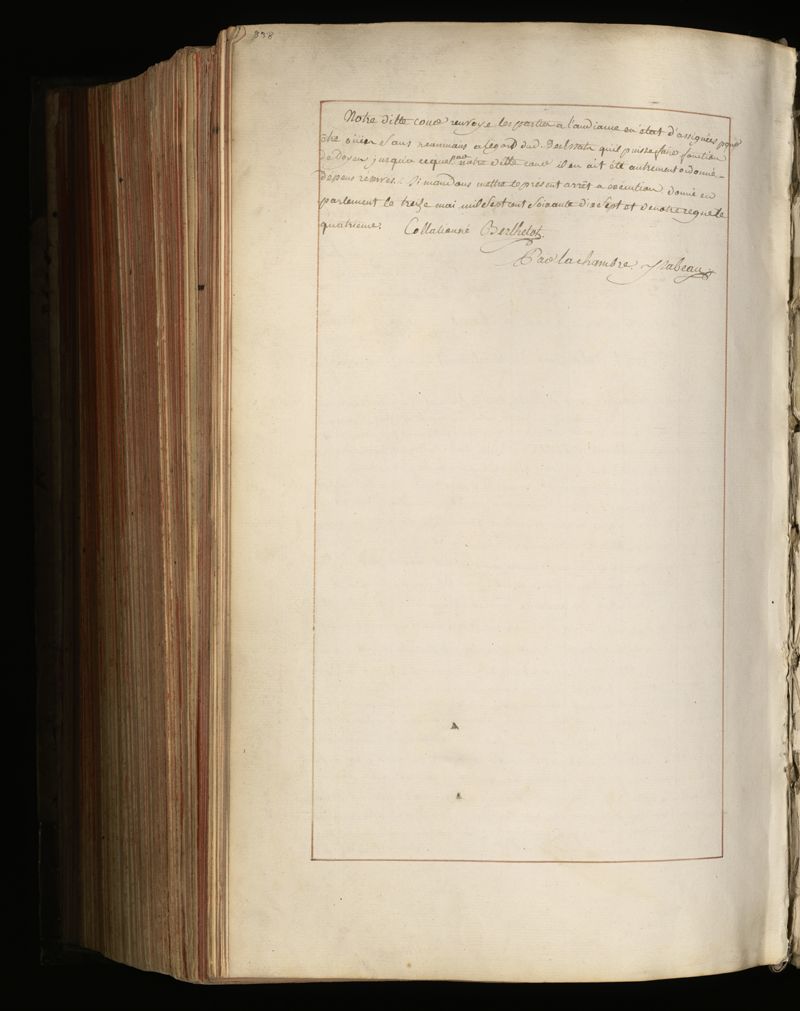 338
Notre ditte cour renvoye les parties a l'audiance en état d'assignées pour
être ouïes sans neanmoins a l'egard dud. qu'il puisse faire fonction
de Doyen jusqu'a ceque par notre ditte cour il en ait été autrement ordonné
depens reservés. Si mandons mettre le present arrêt a execution donné en
parlement le treize mai mil sept cent soixante dix sept et de notre regne le
quatrieme. Collationné Berthelot.
Par la chambre. Ysabeau